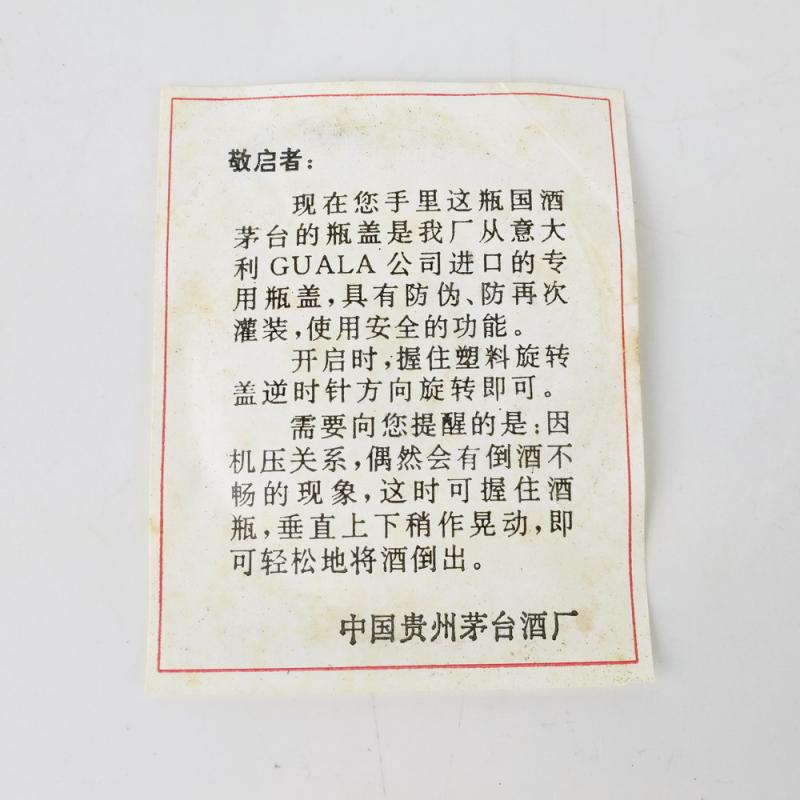 敬启者：
现在您手里这瓶国酒
茅台的瓶盖是我厂从意大
利GUALA公司进口的专
用瓶盖，具有防伪、防再次
灌装，使用安全的功能。
开启时，握住塑料旋转
盖逆时针方向旋转即可。
需要向您提醒的是：因
机压关系，偶然会有倒酒不
畅的现象，这时可握住酒
瓶，垂直上下稍作晃动，即
可轻松地将酒倒出。
中国贵州茅台酒厂